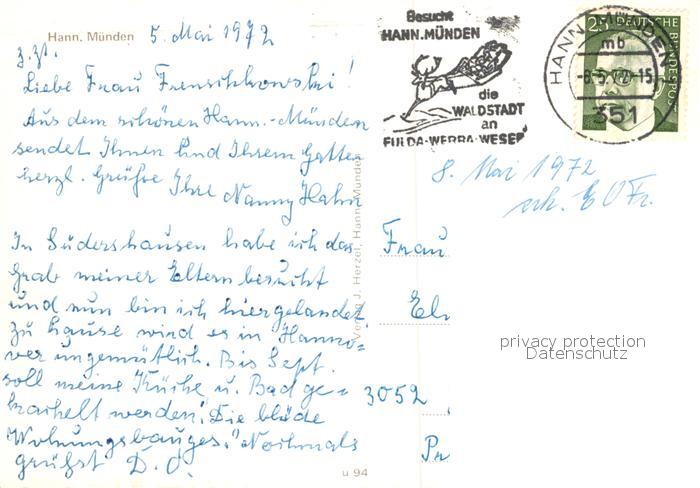 Hann. Münden
z. Zt. 5. Mai 1972
Liebe Frau Frenschkowski!
Aus dem schönen Hann.-Münden
sendet Ihnen und Ihrem Gatten
herzl. Grüße Ihre Nanny Hahn
In Südershausen habe ich das
Grab meiner Eltern besucht
und nun bin ich hiergelandet.
Zu Hause wird es in Hanno=
ver ungemütlich. Bis Sept.
soll meine Küche u. Bad ge=
kachelt werden! "Die blöde
Wohnungsbauges." Nochmals
grüßt D. O.
Verlag J. Herzel, Hann. Münden
u 94
Besucht
HANN. MÜNDEN
die
WALDSTADT
an
FULDA-WERRA-WESER
HANN. MÜNDEN
mb
-8.5.72-15
351
25 DEUTSCHE
BUNDESPOST
8. Mai 1972
Frau
3052
privacy protection
Datenschutz